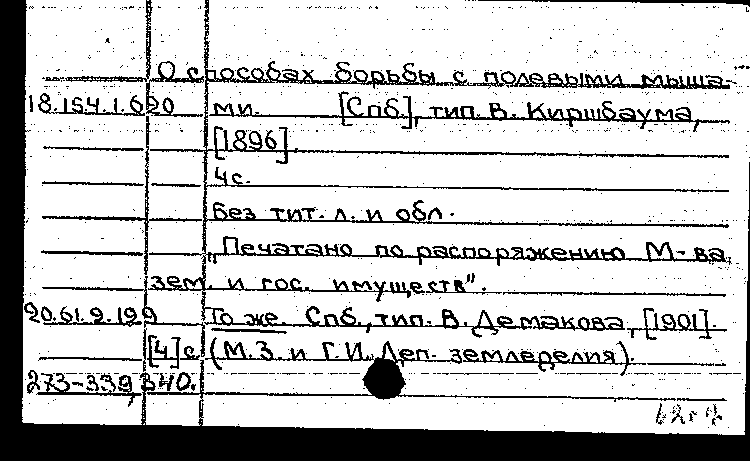 О способах борьбы с полевыми мыша-
18.154.1.620 ми. [Спб.], тип. В. Киршбаума,
[1896].
4с.
Без тит. л. и обл.
„Печатано по распоряжению М-ва
зем. и гос. имуществ".
20.61.2.199 То же. Спб., тип. В. Демакова, [1901].
[4]с. (М.З. и Г.И. Деп. земледелия).
273-339,340.